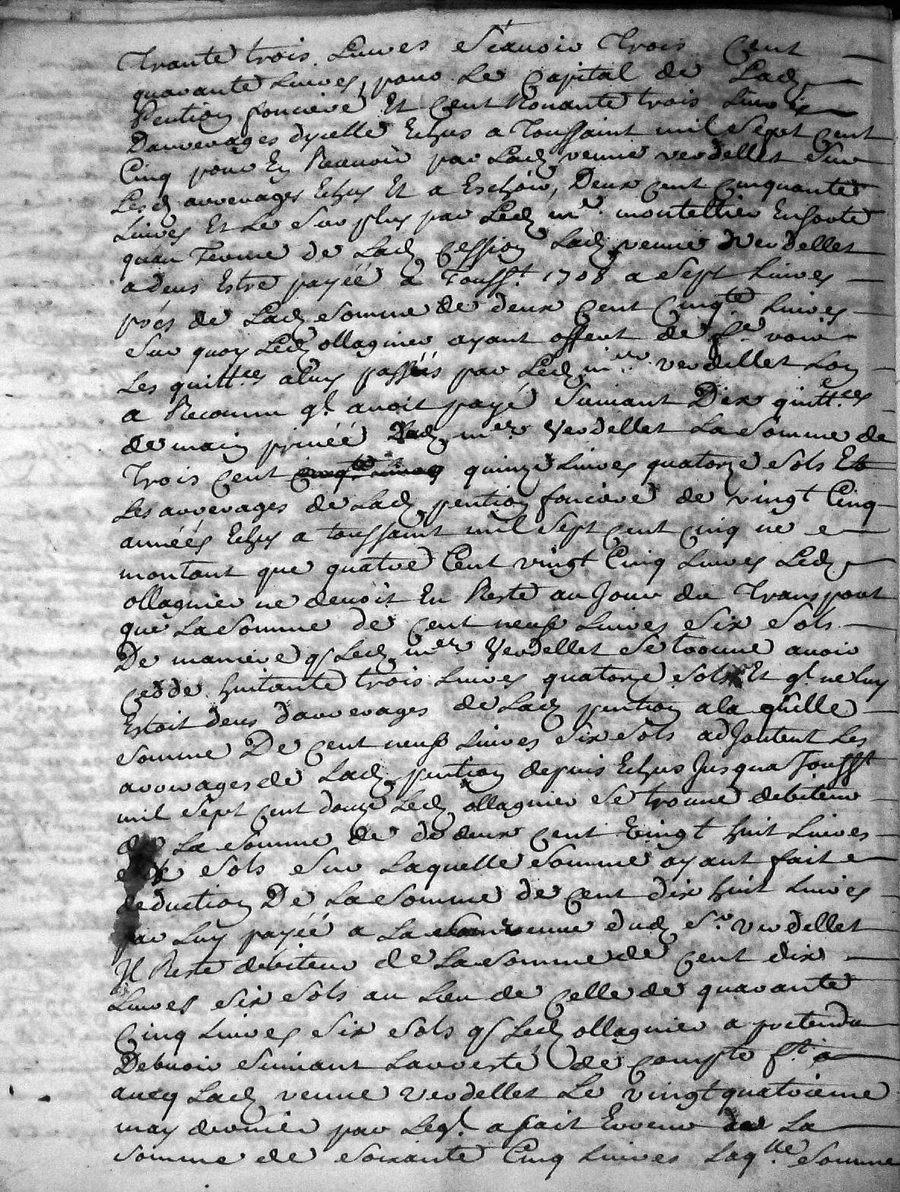 trante trois Livres Scavoir trois Cent
quarante Livres, pour Le Capital de Lad.
Pention fonciere Et Cent Nonante trois Livres
Dareverages dycelle Echus a Toussaint mil Sept Cent
Cinq pour En Recevoir par Lad. veuve verdellet Sur
Lesd. arrerages Echus Et a Eschoir, Deux Cent Cinquante
Livres Et Le Surplus par Led. mr. montellier Ensorte
quau Terme de Lad. Cession Lad. veuve Verdellet
a deus Estre payéé a Tousst. 1708 a Sept Livres
prés de Lad. Somme de deux Cent Cinqte. Livres
Sur quoy Led. ollagnier ayant offert de fe. voir
Les quittces a luy passéés par Led. mr. verdellet Lon
a Reconnu q.l avoit payé Suivant Dix quittces
de main privéé Aud. mr. Verdellet La Somme de
Trois Cent quinze Livres quatorze Sols Et
Les arrerages de Lad. pention fonciere de vingt Cinq
annéés Echus a toussaint mil Sept Cent Cinq ne
montant que quatre Cent vingt Cinq Livres Led.
ollagnier ne devoit En Reste au Jour du Transport
que La Somme de Cent neuf Livres Six Sols
De maniere q. Led. mr. Verdellet Se trouve avoir
Cedé huitante trois Livres quatorze Sols Et q.l ne luy
Estoit deus darrerages de Lad. pention a la qu'elle
Somme De Cent neuf Livres Six Sols adjoutent Les
arrerages de Lad. pention depuis Echus Jusqua Tousst
mil Sept Cent douze Led. ollagnier Se trouve debiteur
de La Somme de de deux Cent Vingt huit Livres
Six Sols Sur Laquelle Somme ayant fait
deduction De La Somme de Cent dix huit Livres
par Luy payéé a La veuve dud. Sr. Verdellet
Il Reste debiteur de La Somme de Cent dix
Livres Six Sols au Lieu de Celle de quarante
Cinq Livres Six Sols q. Led. ollagnier a pretendu
Debvoir Suivant Larresté de Compte ft. a
avecq Lad. veuve Verdellet Le vingt quatrieme
may dernier par Leql. a fait Erreur de La
Somme de Soixante Cinq Livres Laqlle Somme